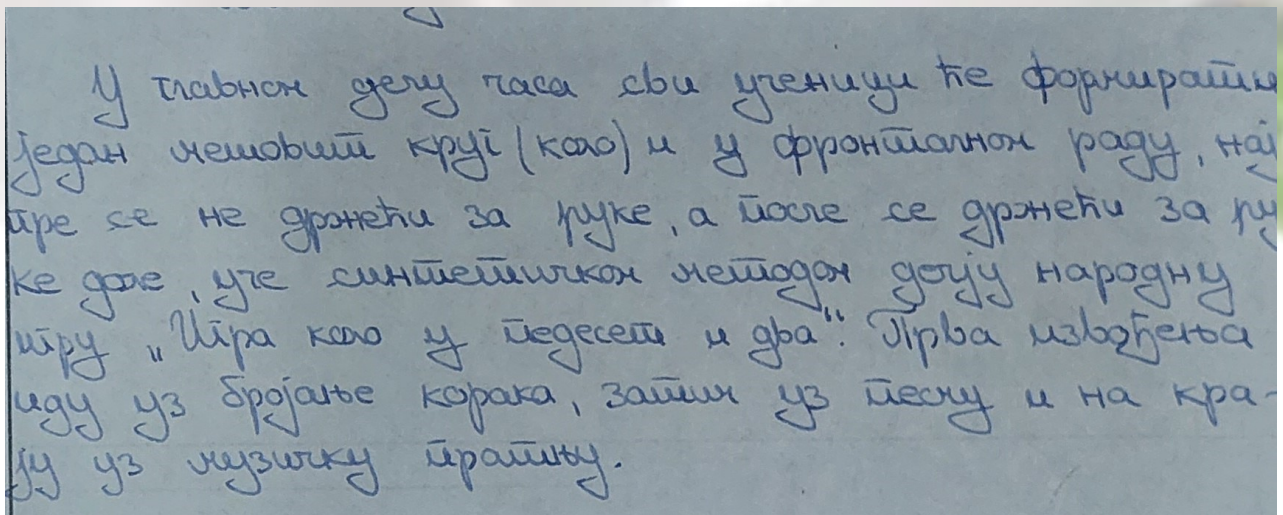 У главном делу часа сви ученици ће формирати
један мешовит круг (коло) и у фронталном раду, нај
пре се не држећи за руке, а после се држећи за ру
ке доле, уче синтетичком методом дечју народну
игру „Игра коло у педесет и два“. Прва извођења
иду уз бројање корака, затим уз песму и на кра-
ју уз музичку пратњу.